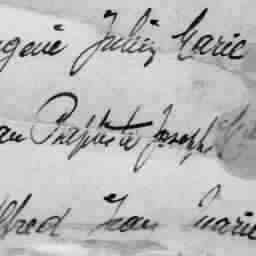 gene Julien Marie
an Baptiste Joseph
lfred Jean Marie